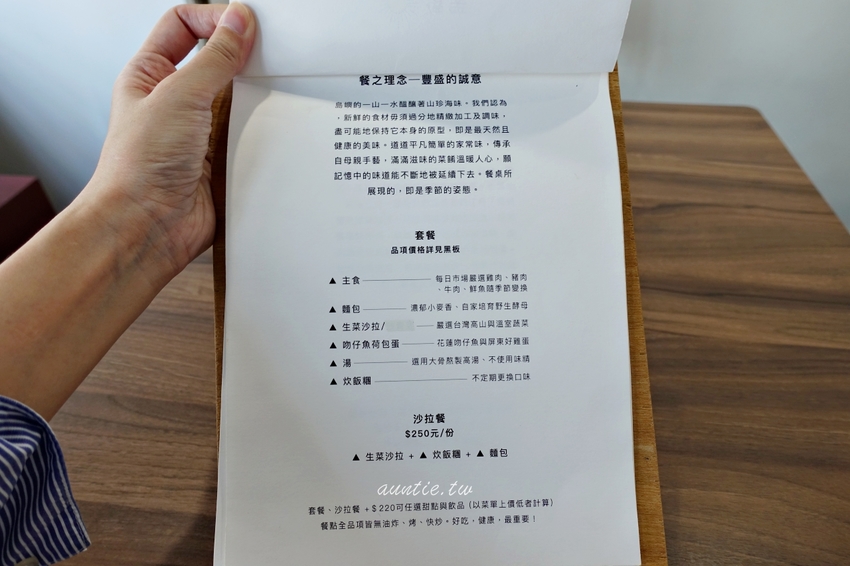 餐之理念—豐盛的誠意
島嶼的一山一水醞釀著山珍海味。我們認為
，新鮮的食材毋須過分地精緻加工及調味，
盡可能地保持它本身的原型，即是最天然且
健康的美味。道道平凡簡單的家常味，傳承
自母親手藝，滿滿滋味的菜餚溫暖人心，願
記憶中的味道能不斷地被延續下去。餐桌所
展現的，即是季節的姿態。
套餐
品項價格詳見黑板
▲ 主食 每日市場嚴選雞肉、豬肉
、牛肉、鮮魚隨季節變換
▲ 麵包 濃郁小麥香、自家培育野生酵母
▲ 生菜沙拉/ 嚴選台灣高山與溫室蔬菜
▲ 吻仔魚荷包蛋 花蓮吻仔魚與屏東好雞蛋
▲ 湯 選用大骨熬製高湯、不使用味精
▲ 炊飯糰 不定期更換口味
沙拉餐
$250元/份
▲ 生菜沙拉 + ▲ 炊飯糰 + ▲ 麵包
auntie.tw
套餐、沙拉餐 +$220可任選甜點與飲品 (以菜單上價低者計算)
餐點全品項皆無油炸、烤、快炒。好吃，健康，最重要！